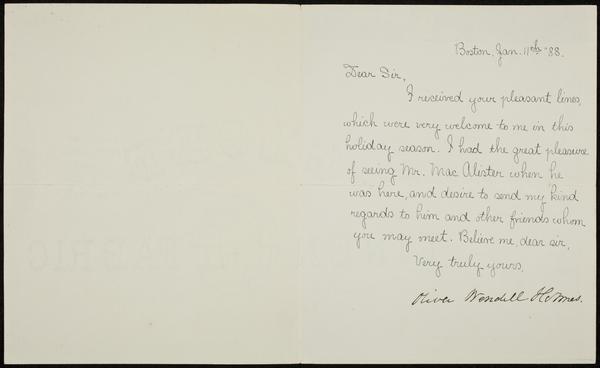 Boston, Jan. 11th '88.
Dear Sir,
I received your pleasant lines,
which were very welcome to me in this
holiday season. I had the great pleasure
of seeing Mr. Mac Alister when he
was here, and desire to send my kind
regards to him and other friends whom
you may meet. Believe me, dear sir,
Very truly yours,
Oliver Wendell Holmes.